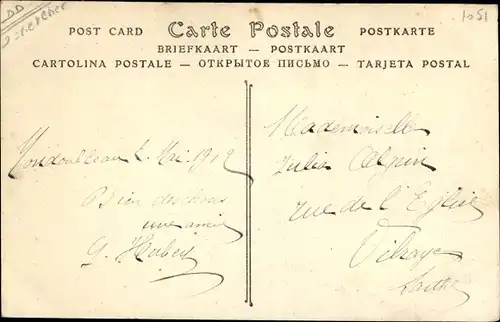 1051
POST CARD Carte Postale POSTKARTE
BRIEFKAART — POSTKAART
CARTOLINA POSTALE — ОТКРЫТОЕ ПИСЬМО — TARJETA POSTAL
Mondoubleau 2 Mai 1912
Bien des choses
une amie
G. Hubert
Mademoiselle
Julia
rue de l'Eglise
Vibraye
Sarthe